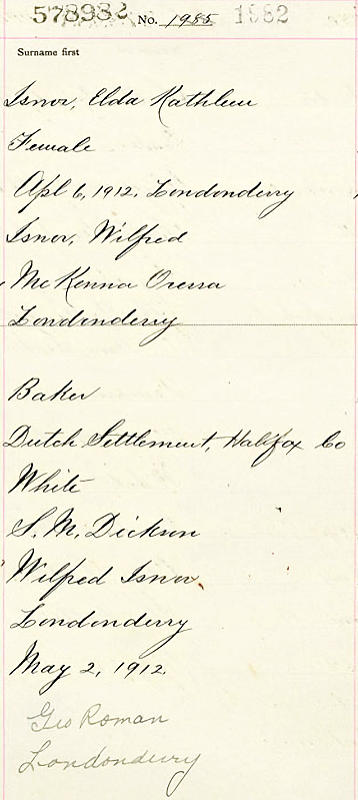 578982 No. 1985 1982
Surname first
Isnor, Elda Kathleen
Female
Apl 6, 1912, Londonderry
Isnor, Wilfred
McKenna Oressa
Londonderry
Baker
Dutch Settlement, Halifax Co
White
S. M. Dickson
Wilfred Isnor
Londonderry
May 2, 1912.
Geo Roman
Londonderry